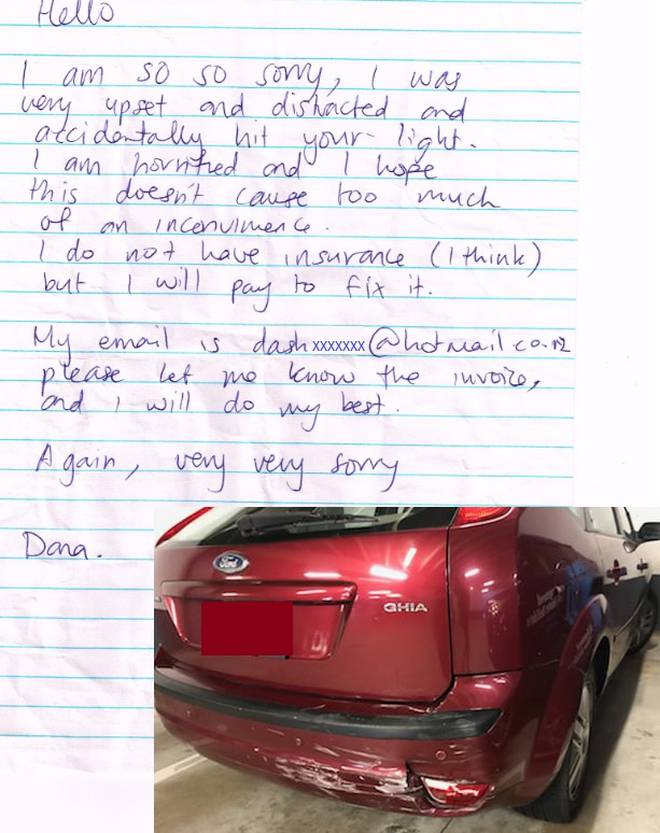 Hello
I am so so sorry, I was
very upset and distracted and
accidentally hit your light.
I am horrified and I hope
this doesn't cause too much
of an inconvinence.
I do not have insurance (I think)
but I will pay to fix it.
My email is dashxxxxxxx@hotmail.co.nz
please let me know the invoice,
and I will do my best.
Again, very very sorry
Dana.
Ford
GHIA